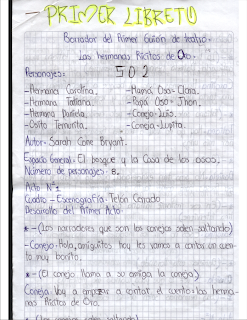 - PRIMER LIBRETO
Borrador del Primer Guión de teatro.
Las hermanas Ricitos de Oro.
Personajes: 502
- Hermana Carolina. - Mamá Osa = Clara.
- Hermana Tatiana. - Papá Oso = Jhon.
- Hermana Daniela. - Conejo = Luis.
- Osito Ternurita. - Coneja = Lupita.
Autor = Sarah Cone Bryant.
Espacio General = El bosque y la Casa de los osos.
Número de personajes = 8.
Acto N°1
Cuadro - Escenografía = Telón Cerrado
Desarrollo del Primer Acto =
* - (Los narradores que son los conejos salen saltando)
- Conejo = Hola, amiguitos hoy les vamos a contar un cuento muy bonito.
* - (El conejo llama a su amiga la coneja)
Coneja = Voy a empezar a contar el cuento = las hermanas Ricitos de Oro.
* - (Los conejos salen saltando)